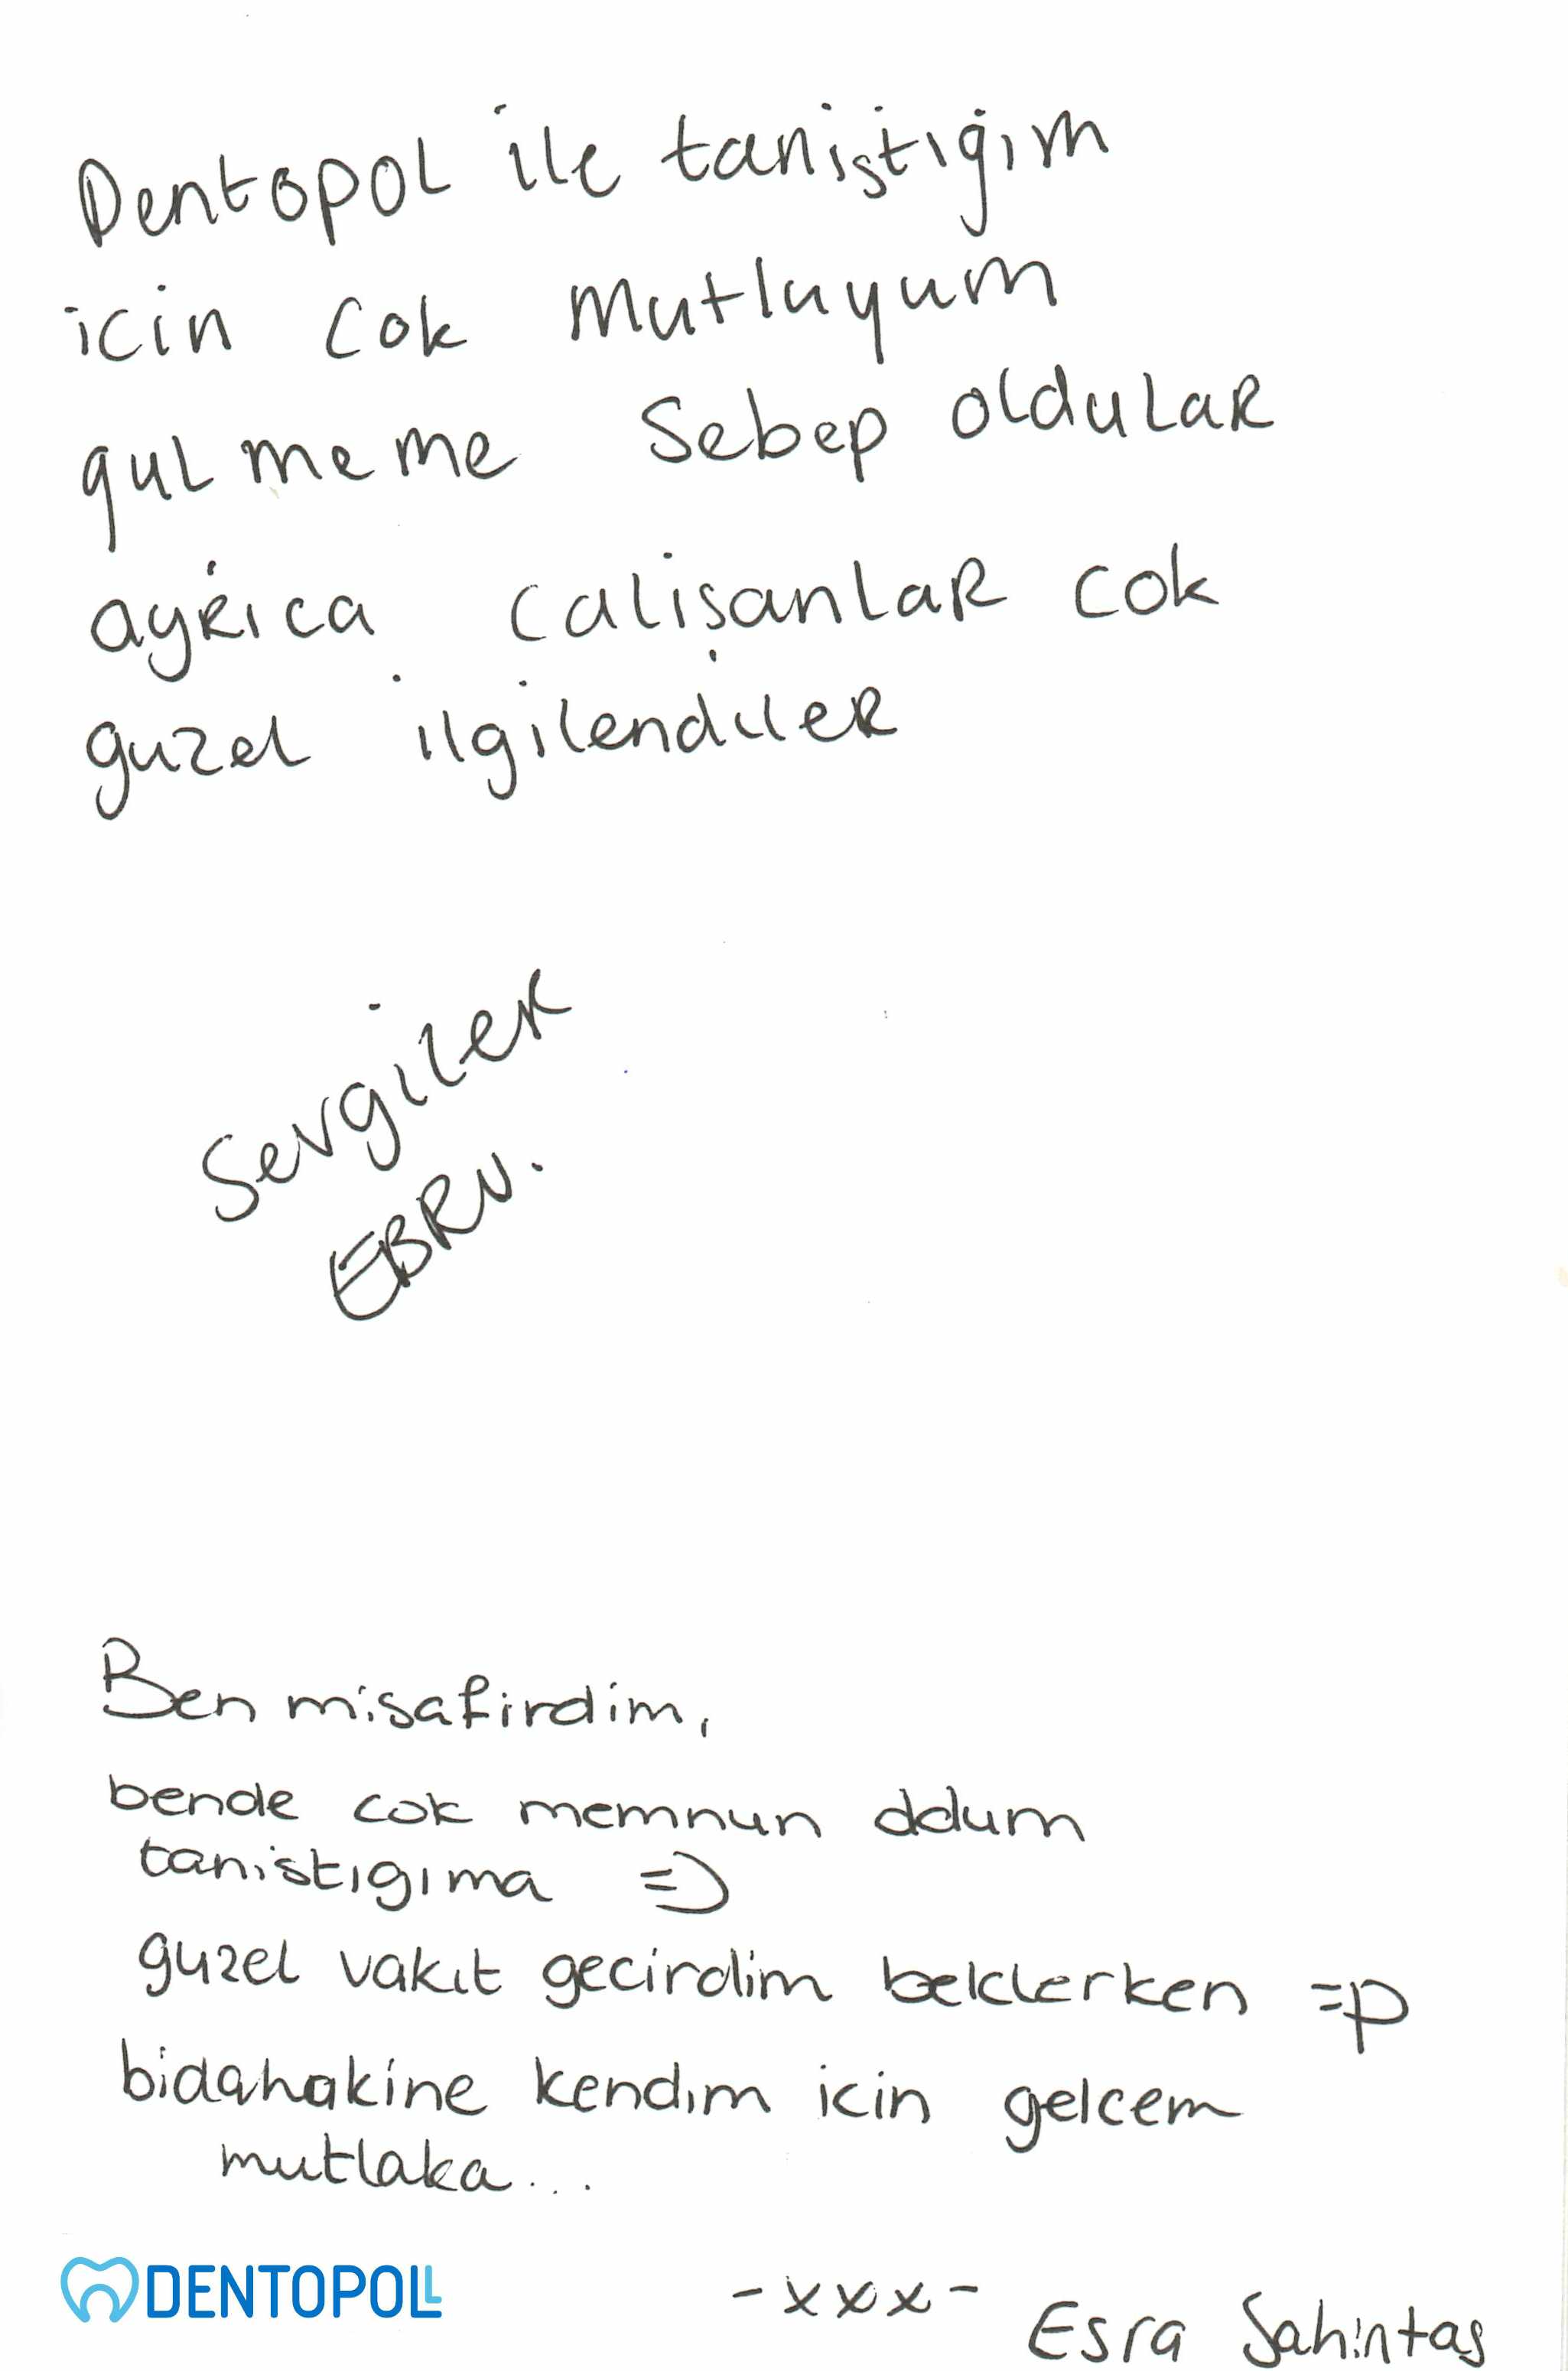 Dentopol ile tanıştığım
icin cok mutluyum
gulmeme Sebep oldular
ayrıca calişanlar cok
guzel ilgilendiler
Sevgiler
EBRU.
Ben misafirdim,
bende cok memnun oldum
tanistıgıma =)
guzel vakıt gecirdim beklerken =p
bidahakine kendım icin gelcem
mutlaka...
DENTOPOLL
-xxx-
Esra Sahintaş